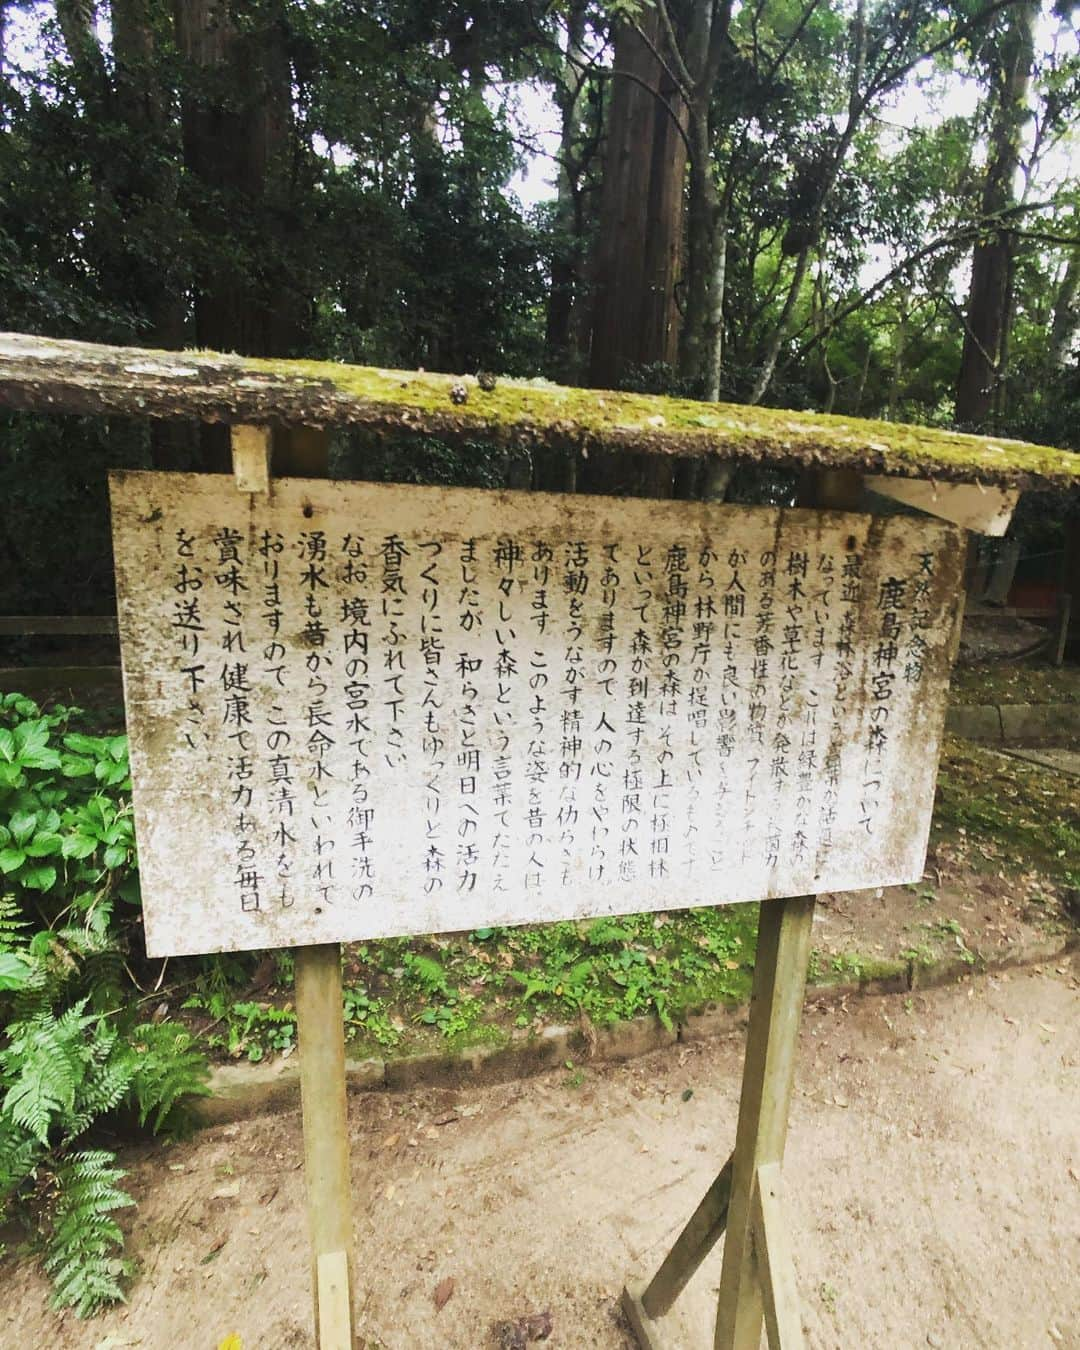 天然記念物
鹿島神宮の森について
最近、森林浴という言葉が話題に
なっています。これは緑豊かな森の
樹木や草花などが発散する殺菌力
のある芳香性の物質、フィトンチッド
が人間にも良い影響を与えること
から林野庁が提唱しているものです
鹿島神宮の森は、その上に極相林
といって森が到達する極限の状態
でありますので、人の心をやわらげ、
活動をうながす精神的な仂らきも
あります。このような姿を昔の人は、
神々しい森という言葉でたたえ
ましたが、和らぎと明日への活力
づくりに皆さんもゆっくりと森の
香気にふれて下さい
なお、境内の宮水である御手洗の
湧水も昔から長命水といわれて
おりますので、この真清水をも
賞味され健康で活力ある毎日
をお送り下さい